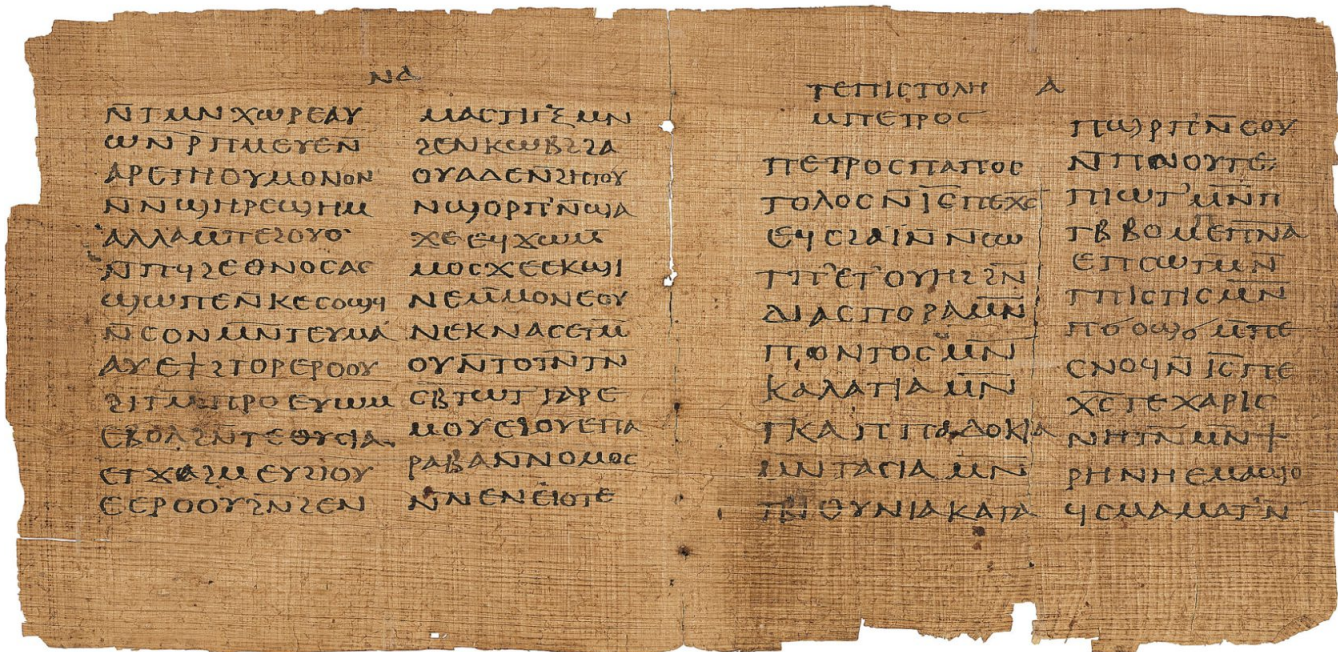 ⲛⲁ
ⲛ̄ⲧⲙⲛⲭⲱⲣⲉⲁⲩ
ⲱⲛ̄ⲣ̄ⲡⲙⲉⲩⲉⲛ̄
ⲁⲣⲉⲧⲏⲟⲩⲙⲟⲛⲟⲛ
ⲛⲛϣⲏⲣⲉϣⲏⲙ
ⲁⲗⲗⲁⲙⲡⲉϩⲟⲩⲟ
ⲛ̄ⲡϥϩⲉⲑⲛⲟⲥⲁⲥ
ϣⲱⲡⲉⲛ̄ⲕⲉⲥⲟⲱϥ
ⲛ̄ⲥⲟⲛⲙⲛ̄ⲧⲉⲩⲙⲁ
ⲁⲩⲉϯϩⲧⲟⲣⲉⲣⲟⲟⲩ
ϩⲓⲧⲙⲡⲣⲟⲉⲩⲱⲙ
ⲉⲃⲟⲗϩⲛ̄ⲧⲉⲑⲩⲥⲓⲁ
ⲉⲧϫⲁϩⲙⲉⲩϩⲓⲟⲩ
ⲉⲉⲣⲟⲟⲩϩⲛ̄ϩⲉⲛ
ⲙⲁⲥⲧⲓⲅⲝⲙⲛ
ϩⲉⲛⲕⲱⲃϩϩⲁ
ⲟⲩⲁⲇⲉⲛ̄ϩⲏⲧⲟⲩ
ⲛϣⲟⲣⲡ'ⲛϣⲁ
ϫⲉⲉϥϫⲱⲙ̄
ⲙⲟⲥϫⲉⲉⲕϣⲓ
ⲛⲉⲙ̄ⲙⲟⲛⲉⲟⲩ
ⲛⲉⲕⲛⲁⲥⲉⲧⲙ̄
ⲟⲩⲛ̄ⲧⲟⲧⲛ̄ⲧⲛ
ⲥⲃ̄ⲧⲱⲧⲅⲁⲣⲉ
ⲙⲟⲩⲉϩⲟⲩⲉⲡⲁ
ⲣⲁⲃⲁⲛ̄ⲛⲟⲙⲟⲥ
ⲛ̄ⲛⲉⲛⲉⲓⲟⲧⲉ
ⲧⲉⲡⲓⲥⲧⲟⲗⲏ ⲁ
ⲙⲡⲉⲧⲣⲟⲥ
ⲡⲉⲧⲣⲟⲥⲡⲁⲡⲟⲥ
ⲧⲟⲗⲟⲥⲛ̄ⲓ̄ⲥ̄ⲡⲉⲭ̄ⲥ̄
ⲉϥⲥϩⲁⲓ̈ⲛ̄ⲛⲥⲱ
ⲧⲡ'ⲉⲧ'ⲟⲩⲏϩϩⲛ̄
ⲇⲓⲁⲥⲡⲟⲣⲁⲙⲛ̄
ⲡⲟⲛⲧⲟⲥⲙⲛ̄
ⲕⲁⲗⲁⲧⲓⲁⲙⲛ̄
ⲧⲕⲁⲡⲡⲁⲇⲟⲕⲓⲁ
ⲙⲛⲧⲁⲥⲓⲁⲙⲛ̄
ⲧⲃⲓⲑⲩⲛⲓⲁⲕⲁⲧⲁ
ⲡϣⲣⲡ'ⲛ̄ⲥⲟⲩ
ⲛ̄ⲡⲛⲟⲩⲧⲉ
ⲡⲓⲱⲧ'ⲙⲛ̄ⲡ
ⲧⲃⲃⲟⲙⲉⲡⲛ̄ⲁ̄
ⲉⲡⲥⲱⲧⲙⲛ̄
ⲧⲡⲓⲥⲧⲓⲥⲙⲛ̄
ⲡϭⲟϣϭⲙⲡⲉ
ⲥⲛⲟϥⲛ̄ⲓ̄ⲥ̄ⲡⲉ
ⲭ̄ⲥ̄ⲧⲉⲭⲁⲣⲓⲥ
ⲛⲏⲧⲛ̄ⲙⲛ̄ϯ
ⲣⲏⲛⲏⲉⲙⲁϣⲟ
ϥⲥⲙⲁⲙⲁⲧ'ⲛ̄